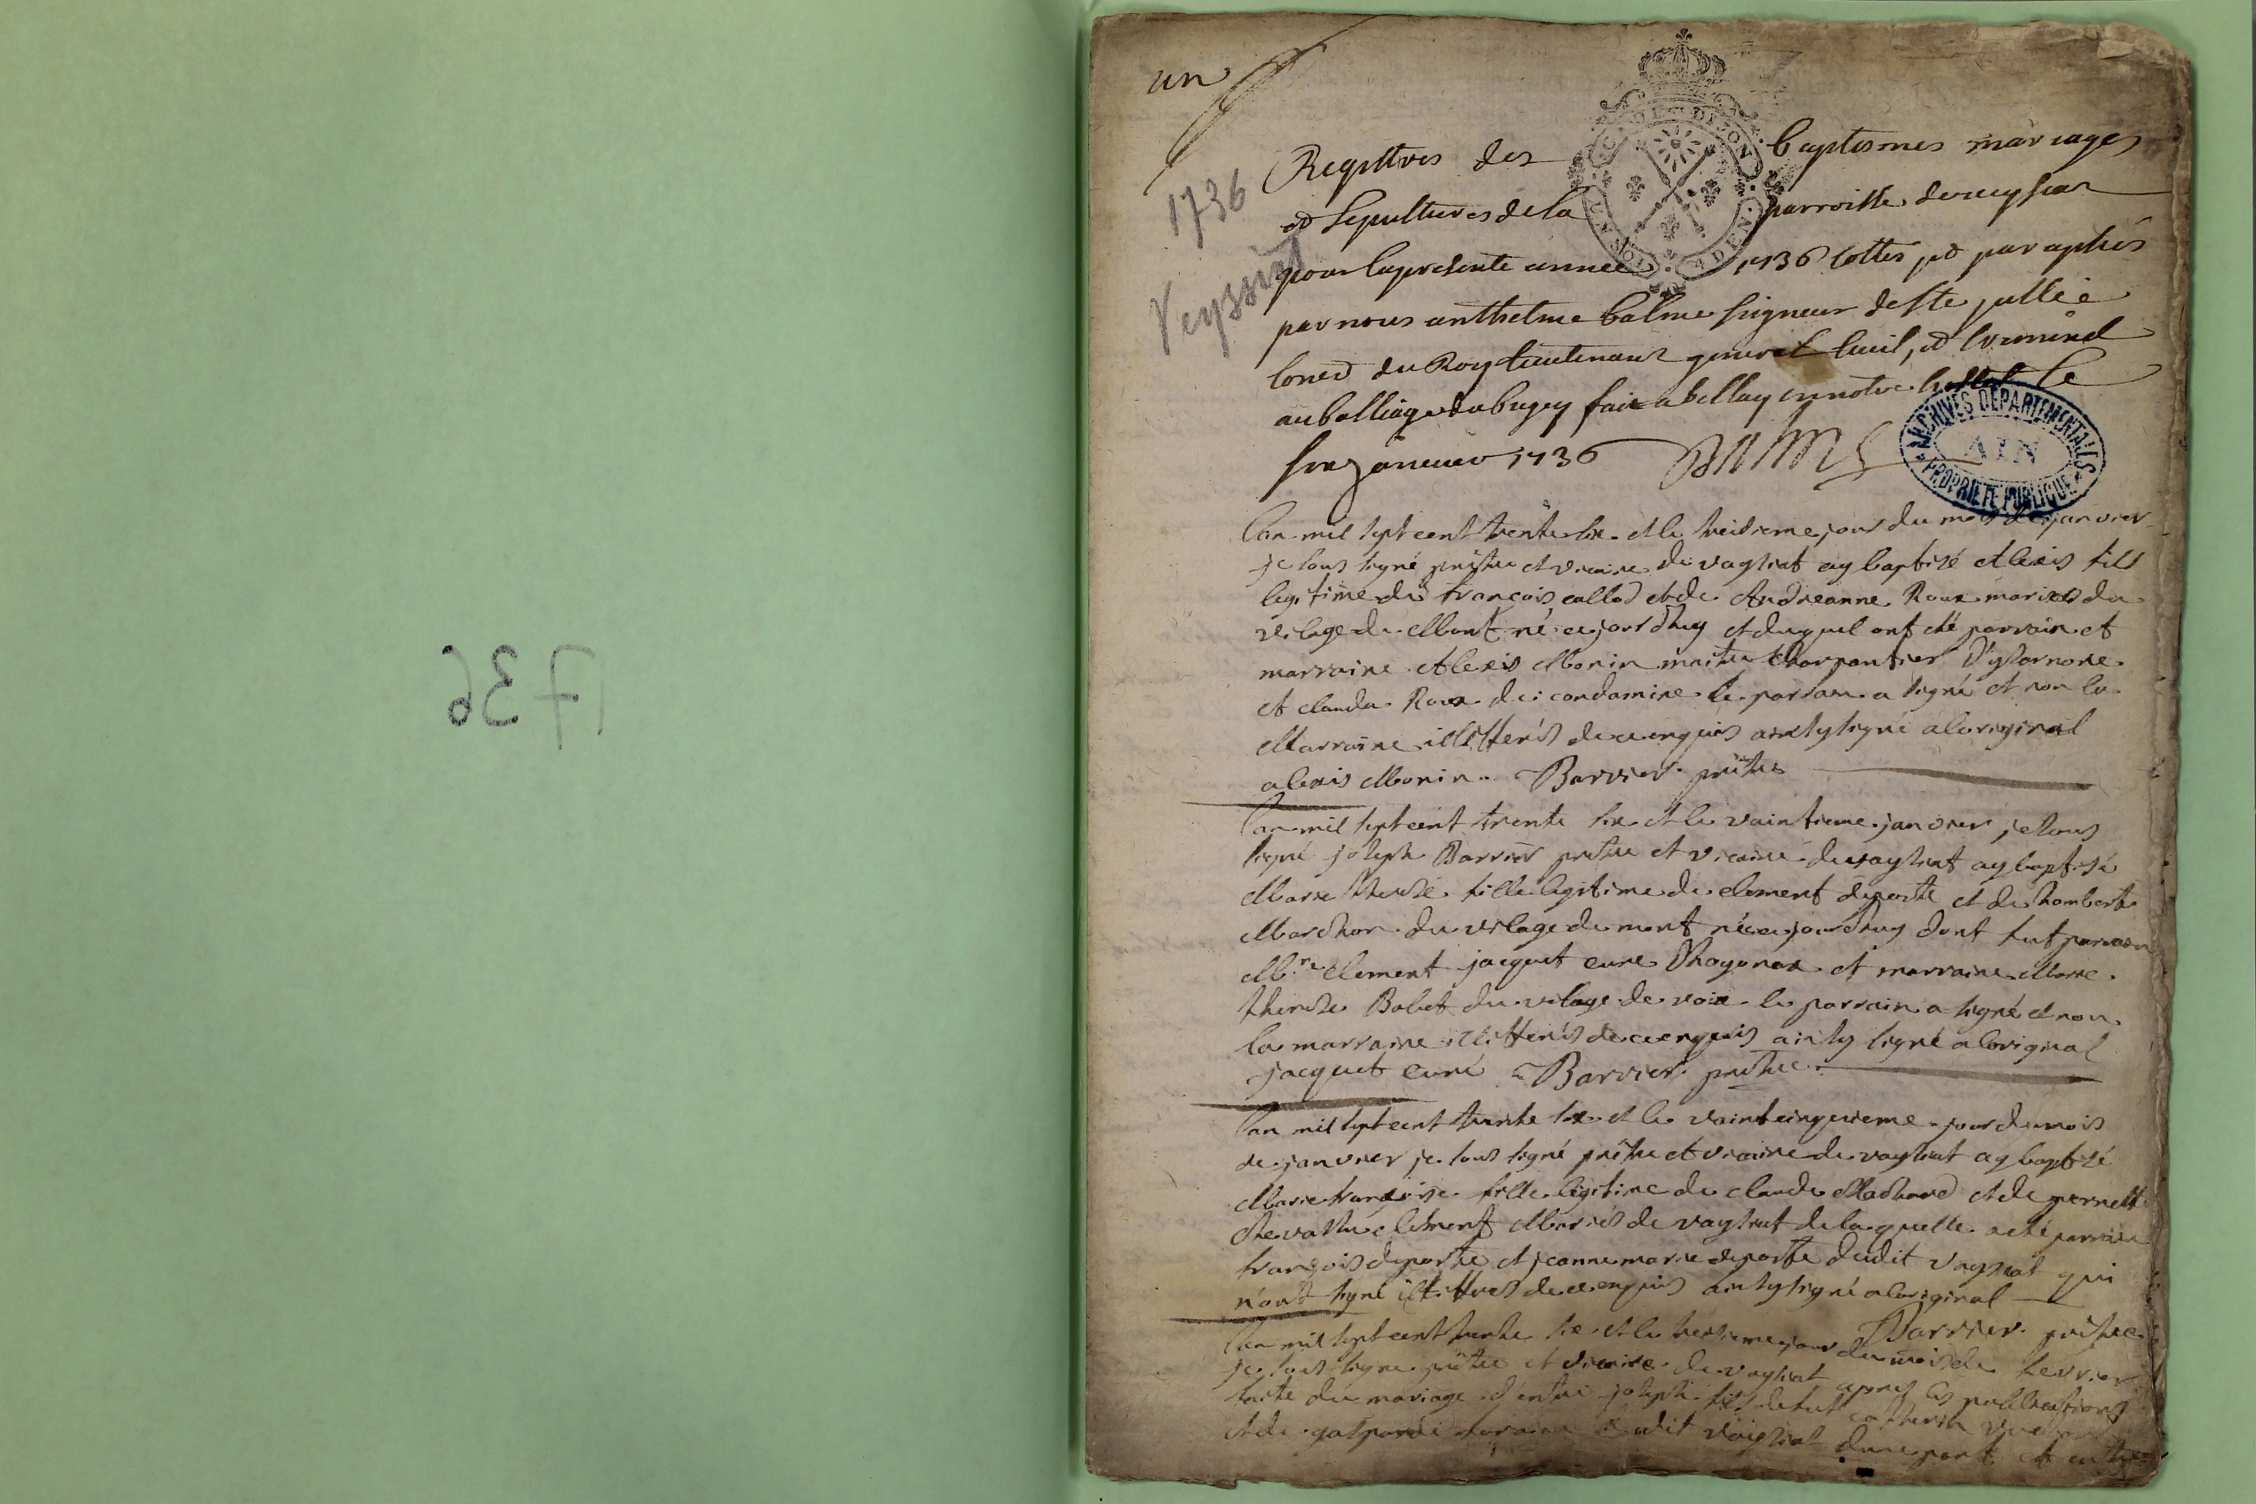 1736
un
1736
Veyssiat
GEN. DE DIJON
UN SOL 4 DEN.
Registres des baptesmes mariages
et sepultures de la parroisse de veyssiat
pour la presente année 1736 cottés et paraphés
par nous anthelme balme seigneur de ste jullie
coner du Roy lieutenant general civil, et criminel
au balliage du bugey fait a bellay en notre hostel le
six janvier 1736 Balme
ARCHIVES DÉPARTEMENTALES
AIN
PROPRIÉTÉ PUBLIQUE
L'an mil sept cent trente six et le treisieme jour du mois de janvier
je sous signé prêtre et vicaire de vaysiat ay baptisé Alexis fils
legitime de françois callod et de Andreanne Roux mariés du
vilage de Mont né ce jourdhuy et duquel ont été parrain et
marraine Alexis Monin maitre charpantier D'ysarnore
et clauda Roux de condamine le parrain a signé et non la
Marraine illitterés de ce enquis ainsy signé a loriginal
alexis Monin Barrier prêtre
L'an mil sept cent trente six et le vaintieme janvier je sous
signé joseph Barrier prêtre et vicaire de vaysiat ay baptisé
Marie therese fille legitime de clement deporte et de humberte
Mardhon du vilage de mont née ce jourdhuy dont fut parrain
Mre clement jacquet curé Dhoyonax et marraine Marie
therese Bolet du vilage de voix le parrain a signé et non
la marraine illitterés de ce enquis ainsy signé a loriginal
jacquet curé Barrier prêtre
L'an mil sept cent trente six et le vaintcinquieme jour du mois
de janvier je sous signé prêtre et vicaire de vaysiat ay baptisé
Marie françoise fille legitime de claude Machard et de pernette
clement Mariés de vaysiat de laquelle a été parrain
françois deporte et jeanne marie deporte dudit vaysiat qui
n'ont signé illittres de ce enquis ainsy signé a loriginal
Barrier prêtre
L'an mil sept cent trente six et le jour du mois de fevrier
je sous signe prêtre et vicaire de vaysiat apres les publications
faite du mariage d'entre joseph fils de fut
et de gasparde dudit vaysiat dune part et entre